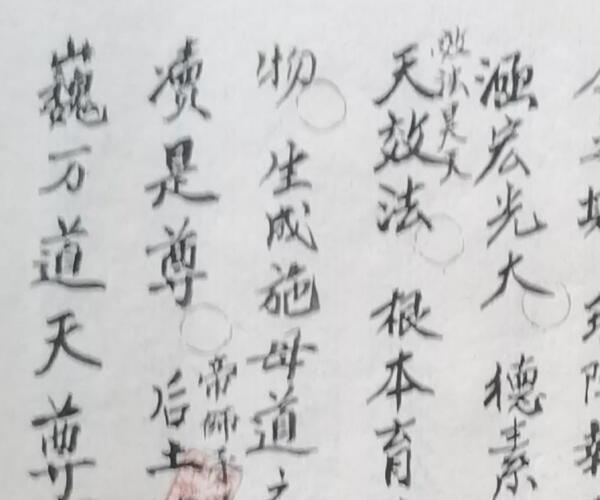 涵宏光大 德素
效法昊天
天效法 根本育
物 生成施母道之
渎是尊 后土
帝师
巍万道天尊